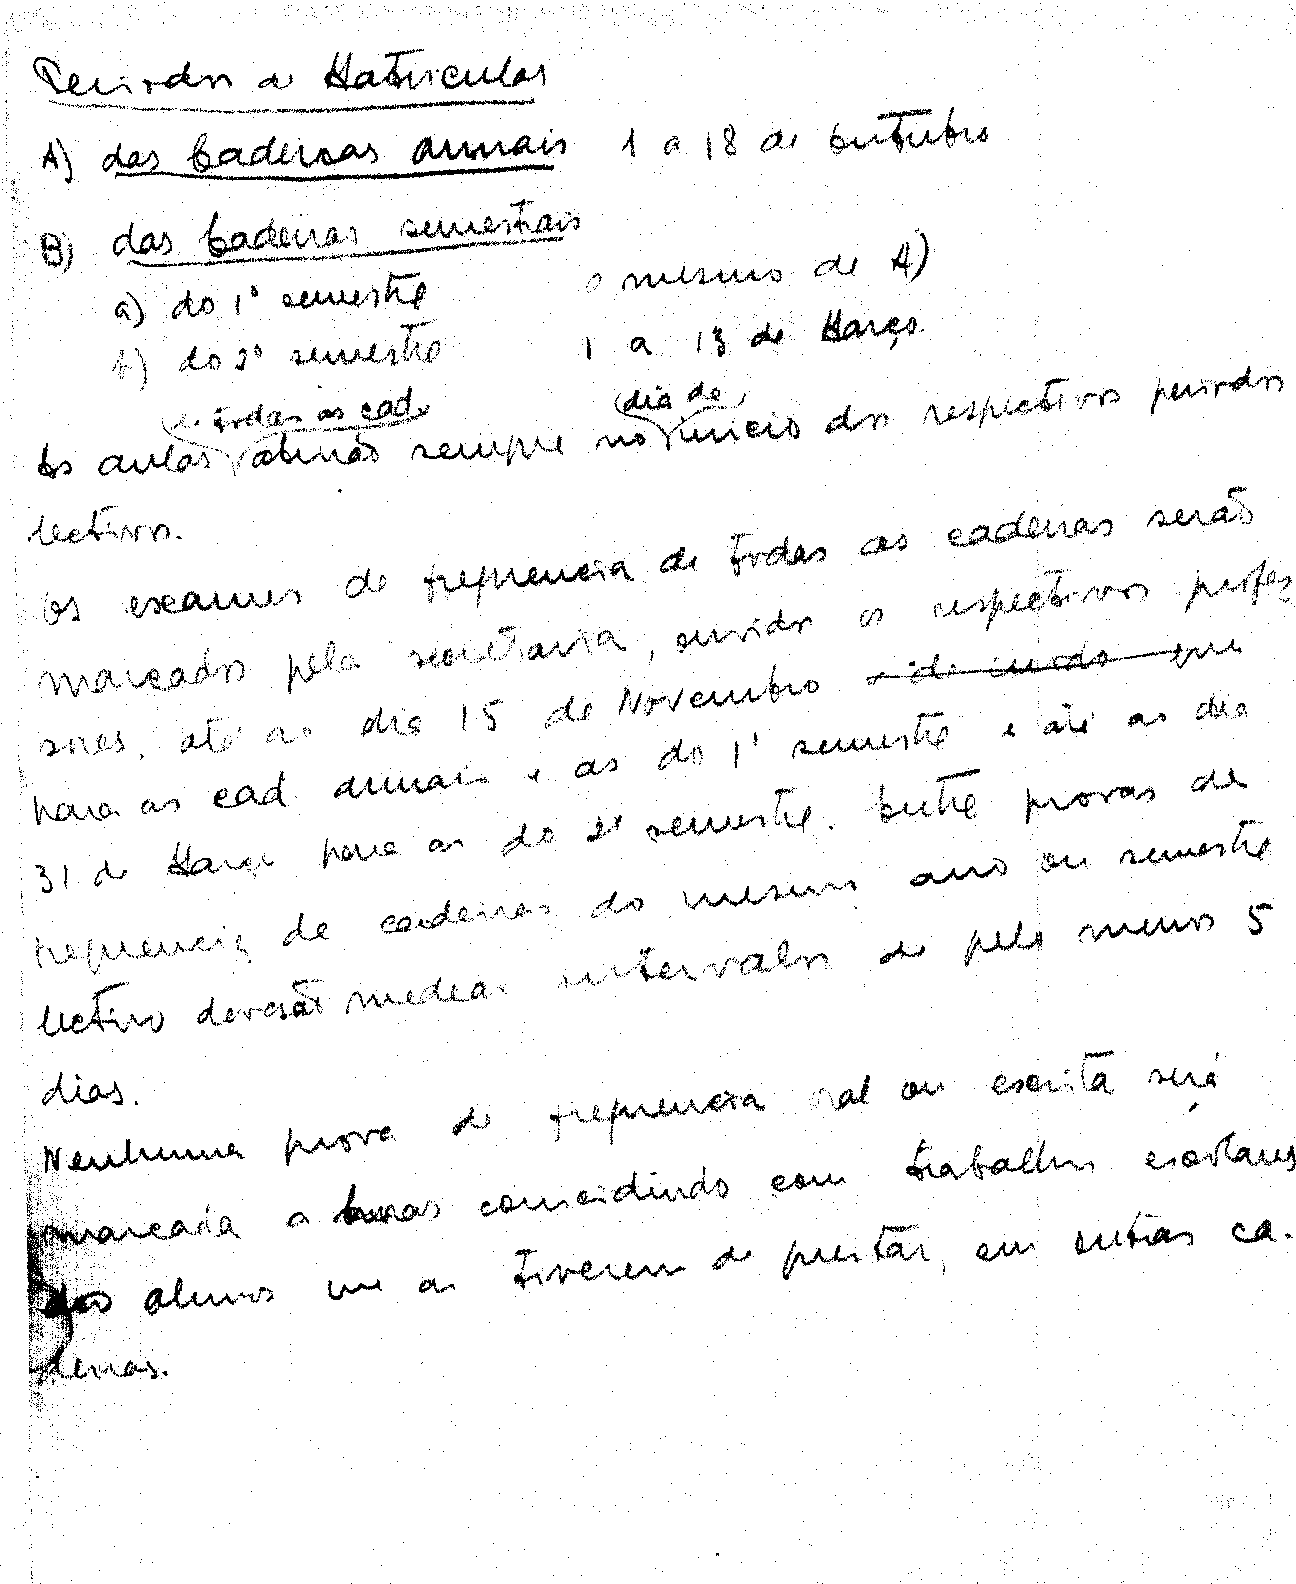 Periodos de Matriculas
A) das Cadeiras anuais 1 a 18 de Outubro
B) das Cadeiras semestrais
a) do 1º semestre o mesmo de A)
b) do 2º semestre 1 a 13 de Março
de todas as cad dia do
As aulas abrirão sempre no inicio dos respectivos periodos
lectivos.
Os exames de frequencia de todas as cadeiras serão
marcados pela secretaria, ouvidos os respectivos profes
sores, até ao dia 15 de Novembro de modo que
para as cad anuais e as do 1º semestre e até ao dia
31 de Março para as do 2º semestre. Entre provas de
frequencia de cadeiras do mesmo ano ou semestre
lectivo deverão mediar intervalos de pelo menos 5
dias.
Nenhuma prova de frequencia oral ou escrita será
marcada a horas coincidindo com trabalhos escolares
dos alunos que as tiverem de prestar, em outras ca-
deiras.